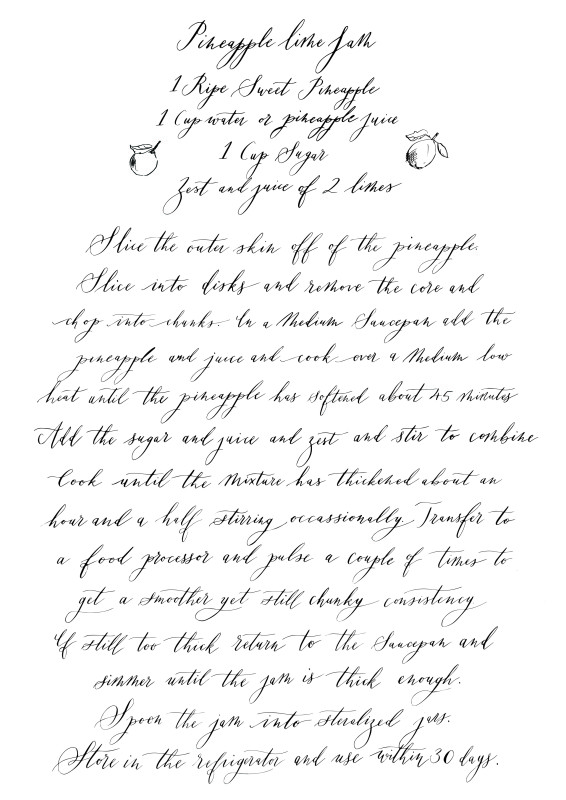 Pineapple lime Jam
1 Ripe Sweet Pineapple
1 Cup water or pineapple juice
1 Cup Sugar
Zest and juice of 2 limes
Slice the outer skin off of the pineapple.
Slice into disks and remove the core and
chop into chunks. In a Medium Saucepan add the
pineapple and juice and cook over a Medium low
heat until the pineapple has softened about 45 minutes
Add the sugar and juice and zest and stir to combine
Cook until the mixture has thickened about an
hour and a half stirring occassionally. Transfer to
a food processor and pulse a couple of times to
get a smoother yet still chunky consistency
If still too thick return to the Saucepan and
simmer until the jam is thick enough.
Spoon the jam into steralized jars.
Store in the refrigerator and use within 30 days.